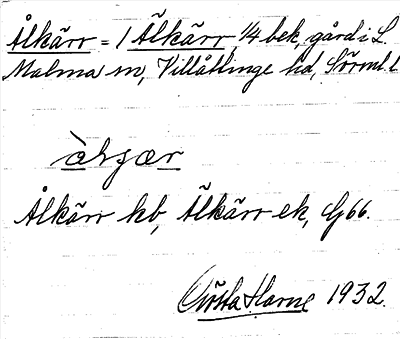 Ålkärr = 1 Älkärr, 1/4 bek, gård i L.
Malma sn, Villåttinge hd, Sörml. l
àlçær
Ålkärr kb, Älkärr ek, G 66.
Gösta Harne 1932.